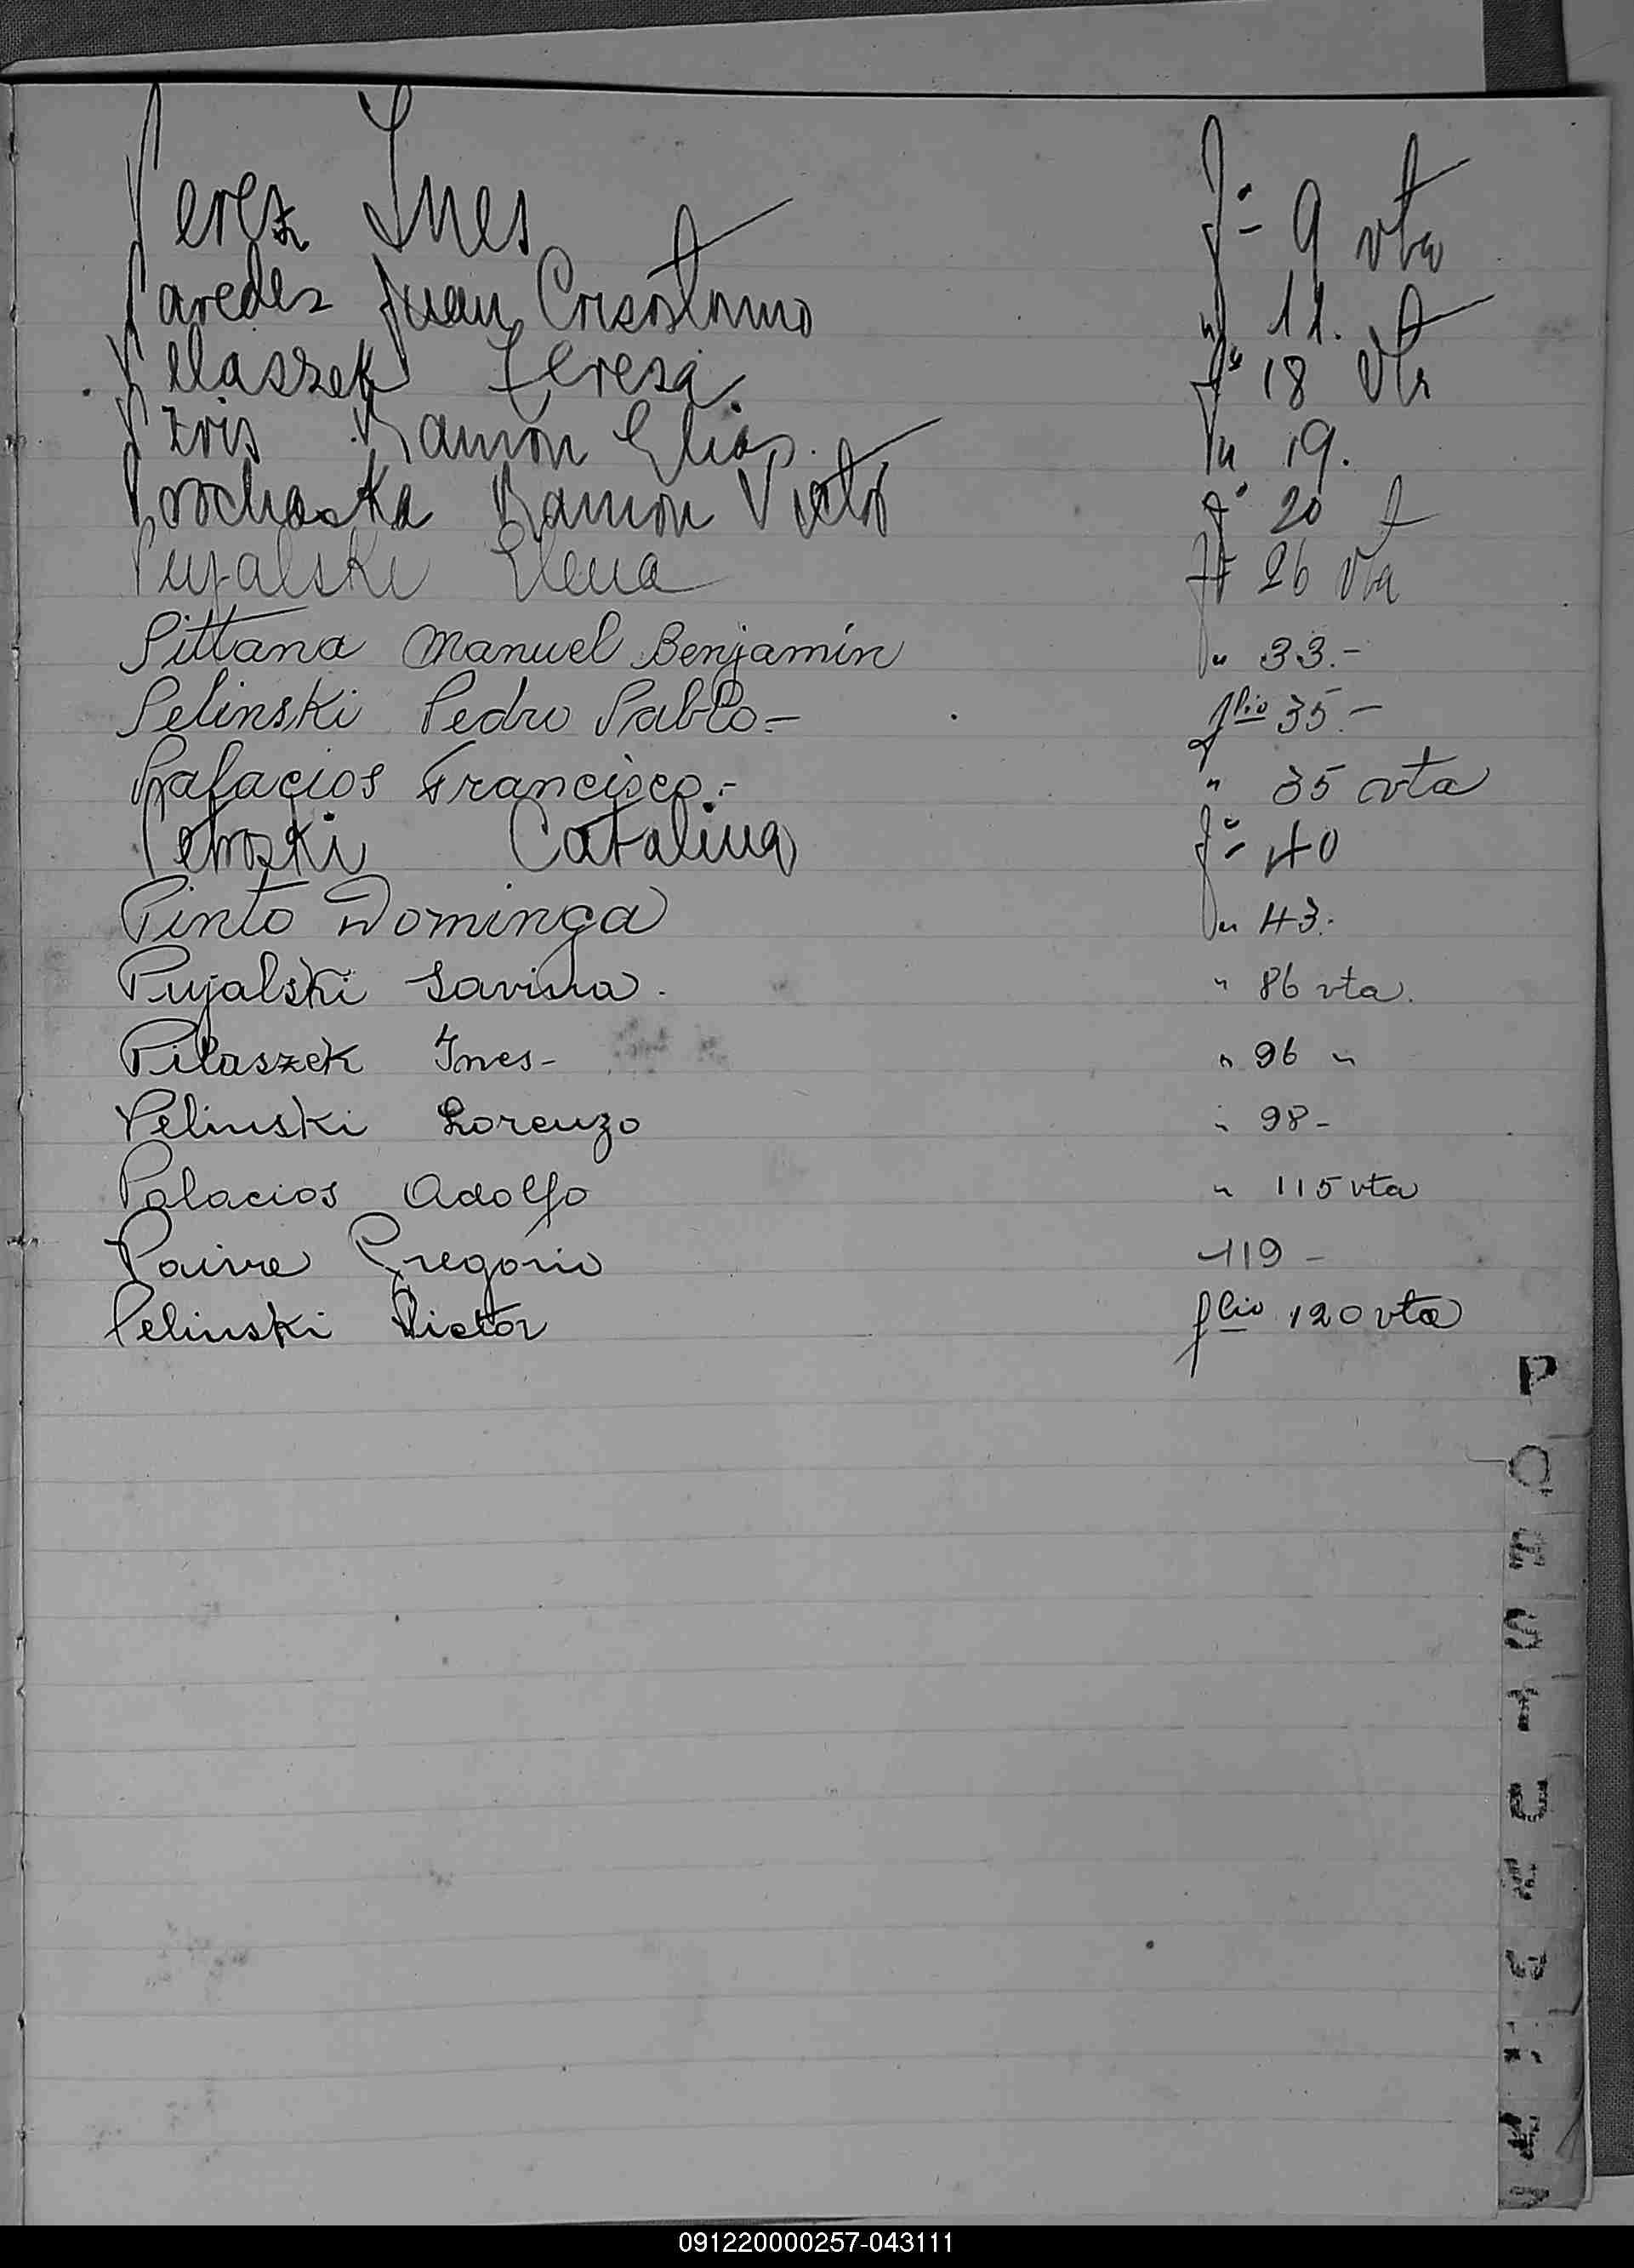 Perez Ines Fº 9 vta
Paredes Juan Crisostomo " 11. vta
Pelaszek Teresa. Fº 18 vta
Ramón Elias. " 19.
Prochaska Ramon Victor Fº 20
Pujalski Elena Fº 26 vta
Pittana Manuel Benjamín " 33.-
Pelinski Pedro Pablo.- flio 35.-
Palacios Francisco.- " 35 vta
Petroski Catalina Fº 40
Pinto Dominga " 43.-
Pujalski Savina. " 86 vta.
Pilaszek Ines- " 96 "
Pelinski Lorenzo " 98-
Palacios Adolfo " 115 vta
Paiva Gregorio 119-
Pelinski Victor flio 120 vta
P
Q
S
T
091220000257-043111